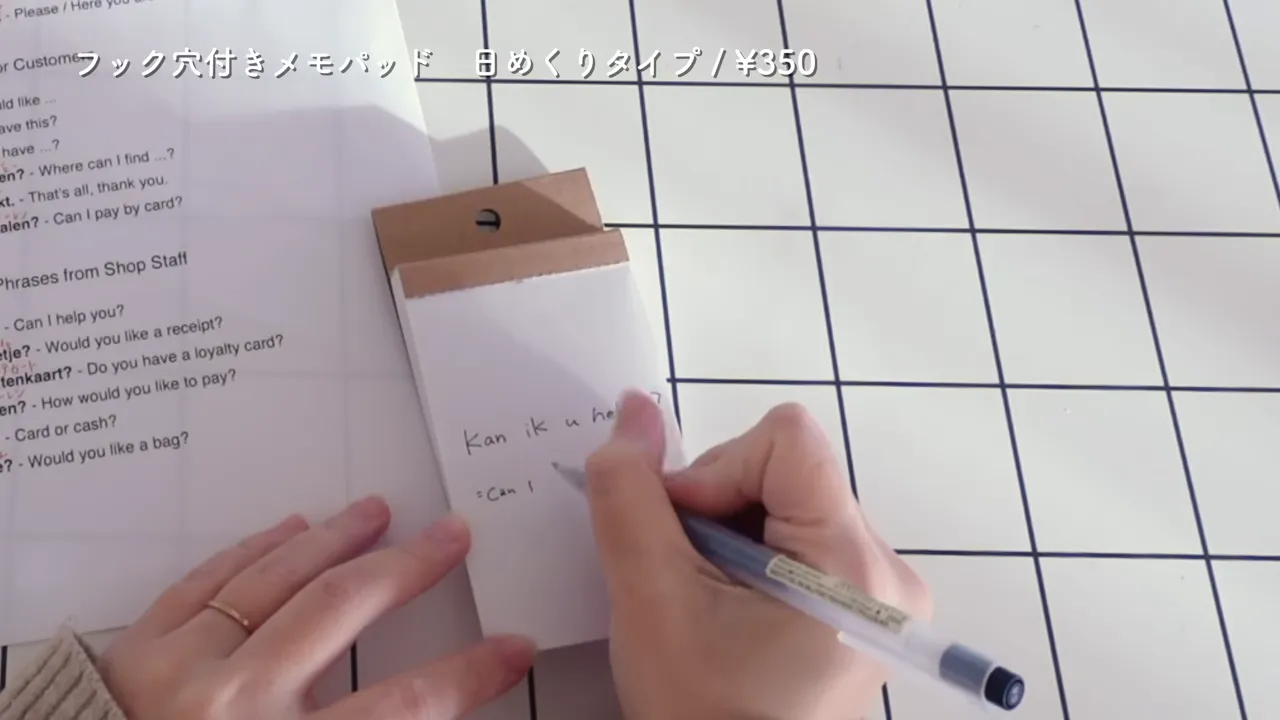 フック穴付きメモパッド　日めくりタイプ / ¥350
- Please / Here you
or Custome
ld like ...
ave this?
have ...?
en? - Where can I find ...?
kt. - That's all, thank you.
alen? - Can I pay by card?
Phrases from Shop Staff
- Can I help you?
etje? - Would you like a receipt?
tenkaart? - Do you have a loyalty card?
en? - How would you like to pay?
- Card or cash?
e? - Would you like a bag?
Kan ik u he ?
=Can I